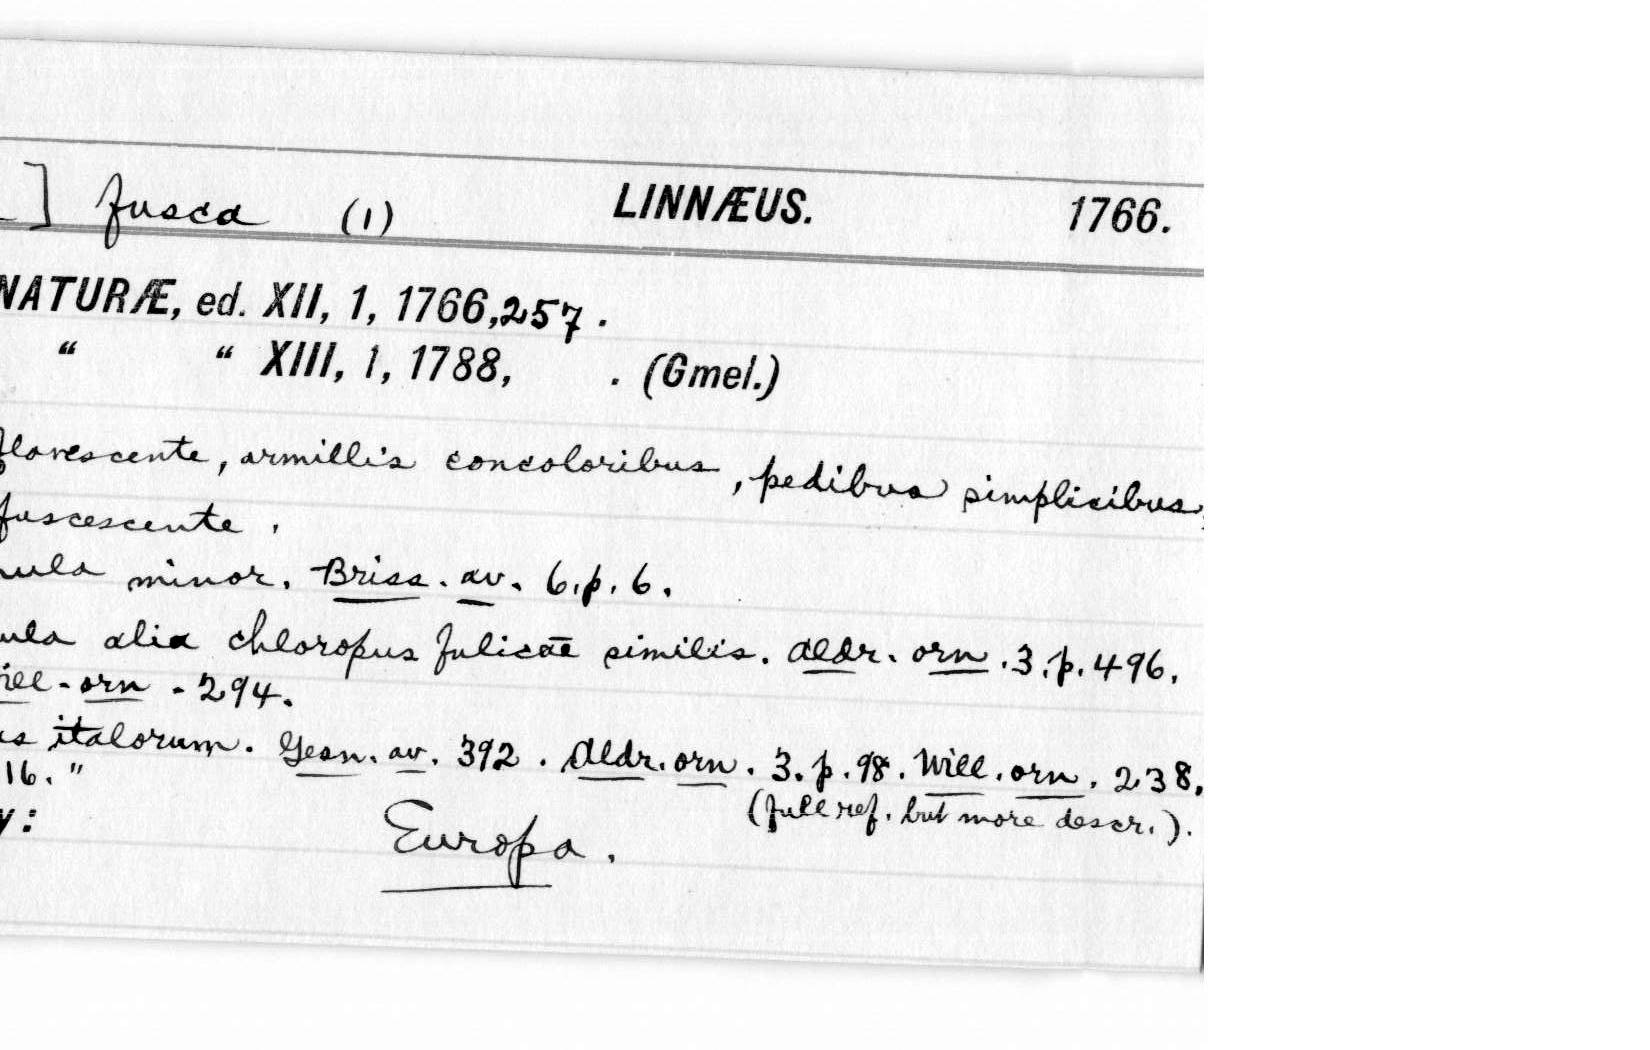 ] fusca (1) LINNÆUS. 1766.
NATURÆ, ed. XII, 1, 1766, 257.
“ “ XIII, 1, 1788, . (Gmel.)
flavescente, armillis concoloribus, pedibus simplicibus,
fuscescente.
nula minor. Briss. av. 6. p. 6.
ula alia chloropus fulicae similis. Aldr. orn. 3. p. 496.
ill. orn. 294.
us italorum. Gesn. av. 392. Aldr. orn. 3. p. 98. Will. orn. 238.
16."
(full ref. but more descr.).
y: Europa.